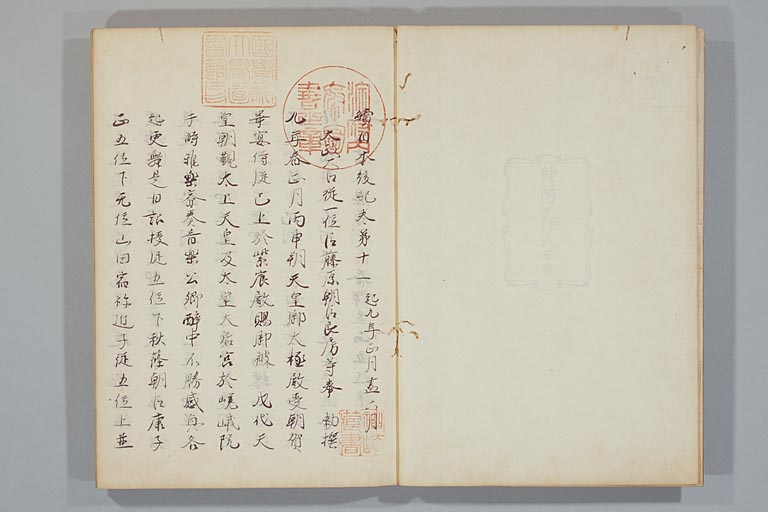 續日本後紀卷第十一 起九年正月盡六月
太政大臣從一位臣藤原朝臣良房等奉 勅撰
九年春正月丙申朔天皇御大極殿受朝賀
畢宴侍從已上於紫宸殿賜御被 戊戌天
皇朝覲太上天皇及太皇大后宮於嵯峨院
于時雅樂寮奏音樂公卿醉中不勝感興各
起更舞是日詔授從五位下秋篠朝臣康子
正五位下无位山田宿祢近子從五位上並